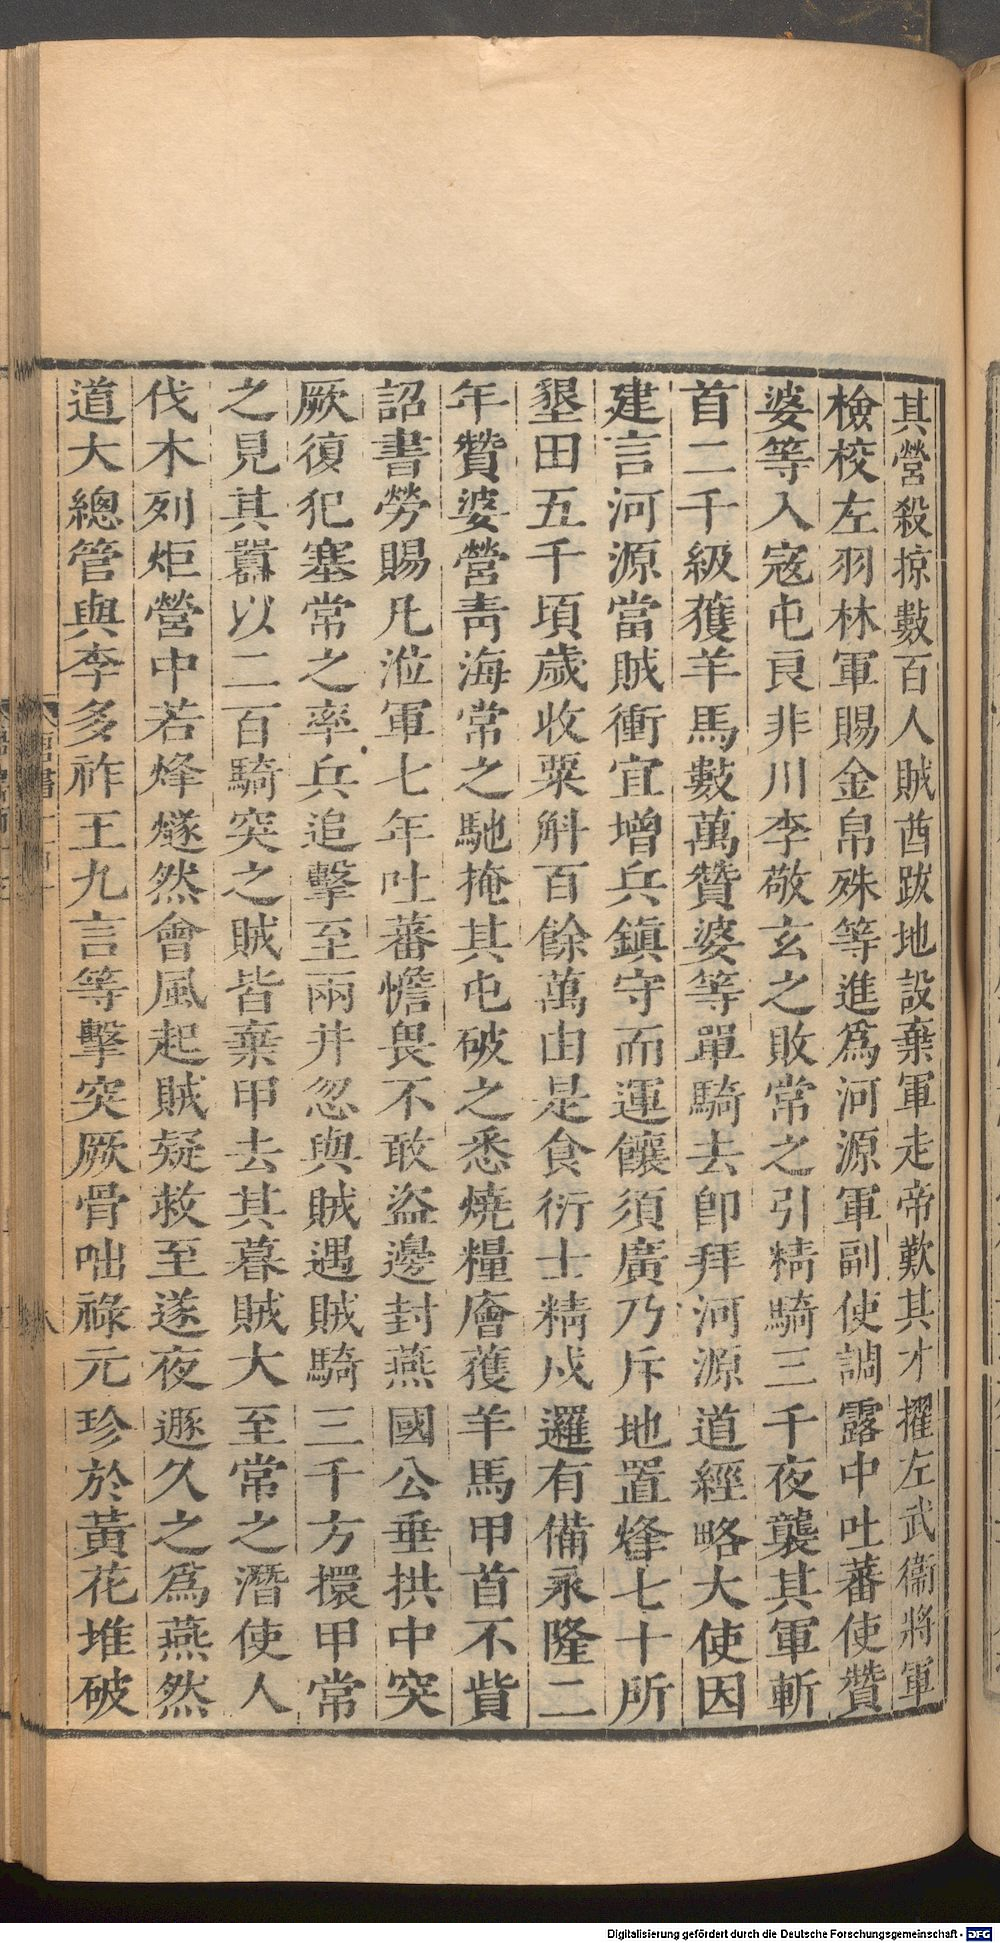 其營殺掠數百人賊酋跋地設棄軍走帝歎其才擢左武衞將軍
檢校左羽林軍賜金帛殊等進爲河源軍副使調露中吐蕃使贊
婆等入寇屯良非川李敬玄之敗常之引精騎三千夜襲其軍斬
首二千級獲羊馬數萬贊婆等單騎去卽拜河源道經略大使因
建言河源當賊衝宜增兵鎮守而運饟須廣乃斥地置烽七十所
墾田五千頃歲收粟斛百餘萬由是食衍士精戍邏有備永隆二
年贊婆營靑海常之馳掩其屯破之悉燒糧廥獲羊馬甲首不貲
詔書勞賜凡涖軍七年吐蕃憺畏不敢盜邊封燕國公垂拱中突
厥復犯塞常之率兵追擊至兩井忽與賊遇賊騎三千方擐甲常
之見其囂以二百騎突之賊皆棄甲去其暮賊大至常之潛使人
伐木列炬營中若烽燧然會風起賊疑救至遂夜遯久之爲燕然
道大總管與李多祚王九言等擊突厥骨咄祿元珍於黃花堆破
唐書
八
Digitalisierung gefördert durch die Deutsche Forschungsgemeinschaft - DFG